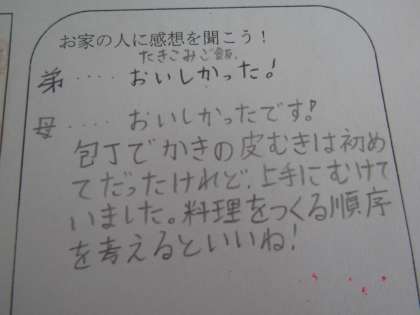 お家の人に感想を聞こう！
たきこみご飯、
弟‥‥おいしかった！
母‥‥おいしかったです！
包丁でかきの皮むきは初め
てだったけれど、上手にむけて
いました。料理をつくる順序
を考えるといいね！